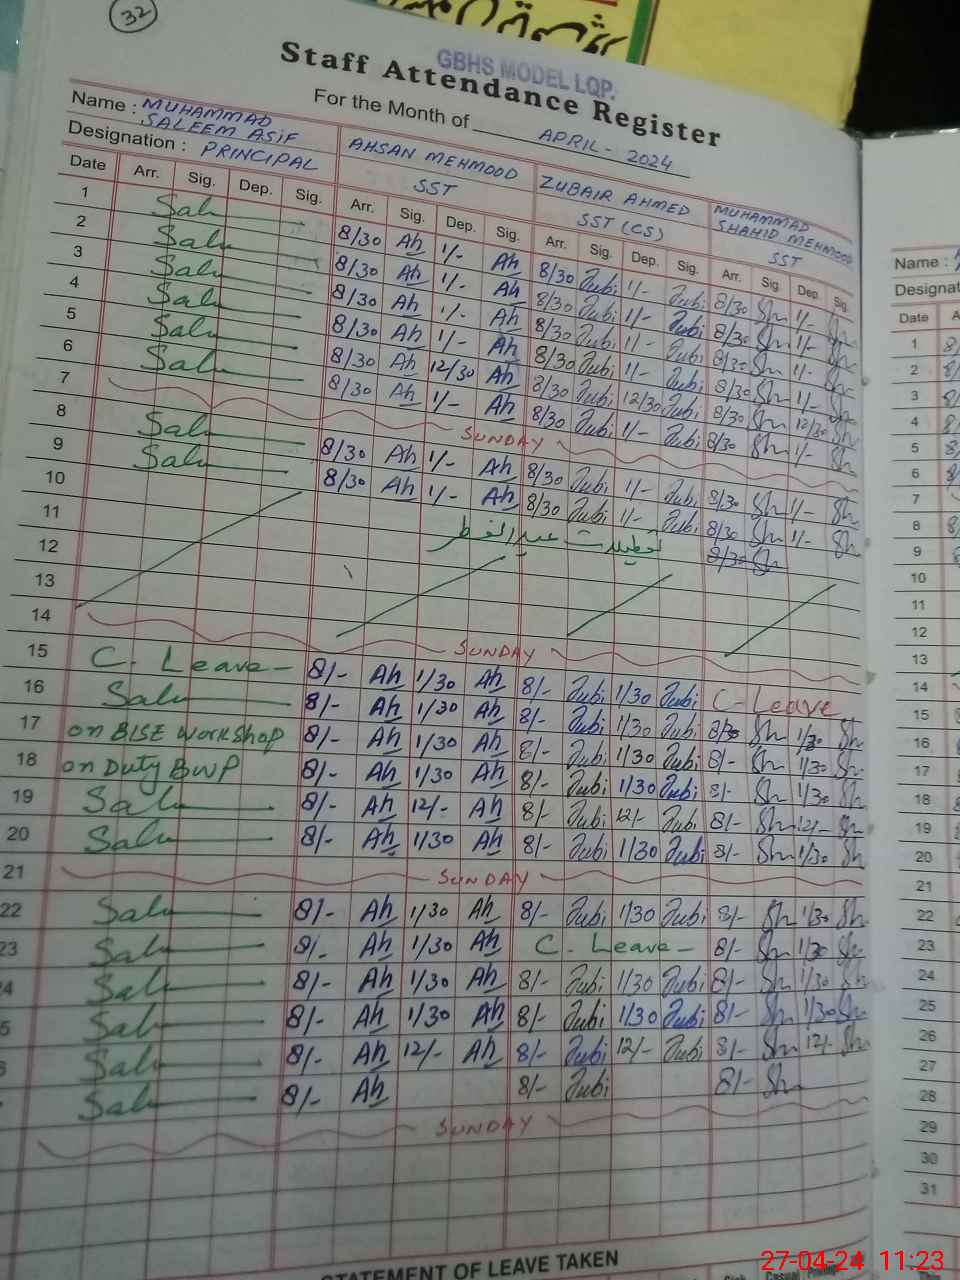 32
GBHS MODEL LQP.
Staff Attendance Register
For the Month of APRIL - 2024
Name : MUHAMMAD SALEEM ASIF
AHSAN MEHMOOD
ZUBAIR AHMED
MUHAMMAD SHAHID MEHMOOD
Designation : PRINCIPAL
SST
SST (CS)
SST
Date Arr. Sig. Dep. Sig. Arr. Sig. Dep. Sig. Arr. Sig. Dep. Sig. Arr. Sig. Dep. Sig.
1 Sal 8/30 Ah 1/- Ah 8/30 Zubi 1/- Zubi 8/30 Sh 1/- Sh
2 Sal 8/30 Ah 1/- Ah 8/30 Zubi 1/- Zubi 8/30 Sh 1/- Sh
3 Sal 8/30 Ah 1/- Ah 8/30 Zubi 1/- Zubi 8/30 Sh 1/- Sh
4 Sal 8/30 Ah 1/- Ah 8/30 Zubi 1/- Zubi 8/30 Sh 1/- Sh
5 Sal 8/30 Ah 12/30 Ah 8/30 Zubi 12/30 Zubi 8/30 Sh 12/30 Sh
6 Sal 8/30 Ah 1/- Ah 8/30 Zubi 1/- Zubi 8/30 Sh 1/- Sh
7 SUNDAY
8 Sal 8/30 Ah 1/- Ah 8/30 Zubi 1/- Zubi 8/30 Sh 1/- Sh
9 Sal 8/30 Ah 1/- Ah 8/30 Zubi 1/- Zubi 8/30 Sh 1/- Sh
10 تعطیلات عید الفطر 8/30 Sh
11
12
13
14 SUNDAY
15 C. Leave - 8/- Ah 1/30 Ah 8/- Zubi 1/30 Zubi C- Leave
16 Sal 8/- Ah 1/30 Ah 8/- Zubi 1/30 Zubi 8/- Sh 1/30 Sh
17 on BISE WORKSHOP 8/- Ah 1/30 Ah 8/- Zubi 1/30 Zubi 8/- Sh 1/30 Sh
18 on Duty BWP 8/- Ah 1/30 Ah 8/- Zubi 1/30 Zubi 8/- Sh 1/30 Sh
19 Sal 8/- Ah 12/- Ah 8/- Zubi 12/- Zubi 8/- Sh 12/- Sh
20 Sal 8/- Ah 1/30 Ah 8/- Zubi 1/30 Zubi 8/- Sh 1/30 Sh
21 SUNDAY
22 Sal 8/- Ah 1/30 Ah 8/- Zubi 1/30 Zubi 8/- Sh 1/30 Sh
23 Sal 8/- Ah 1/30 Ah C. Leave - 8/- Sh 1/30 Sh
4 Sal 8/- Ah 1/30 Ah 8/- Zubi 1/30 Zubi 8/- Sh 1/30 Sh
5 Sal 8/- Ah 1/30 Ah 8/- Zubi 1/30 Zubi 8/- Sh 1/30 Sh
Sal 8/- Ah 12/- Ah 8/- Zubi 12/- Zubi 8/- Sh 12/- Sh
Sal 8/- Ah 8/- Zubi 8/- Sh
SUNDAY
STATEMENT OF LEAVE TAKEN
Name :
Designat
Date
1
2
3
4
5
6
7
8
9
10
11
12
13
14
15
16
17
18
19
20
21
22
23
24
25
26
27
28
29
30
31
27-04-24 11:23